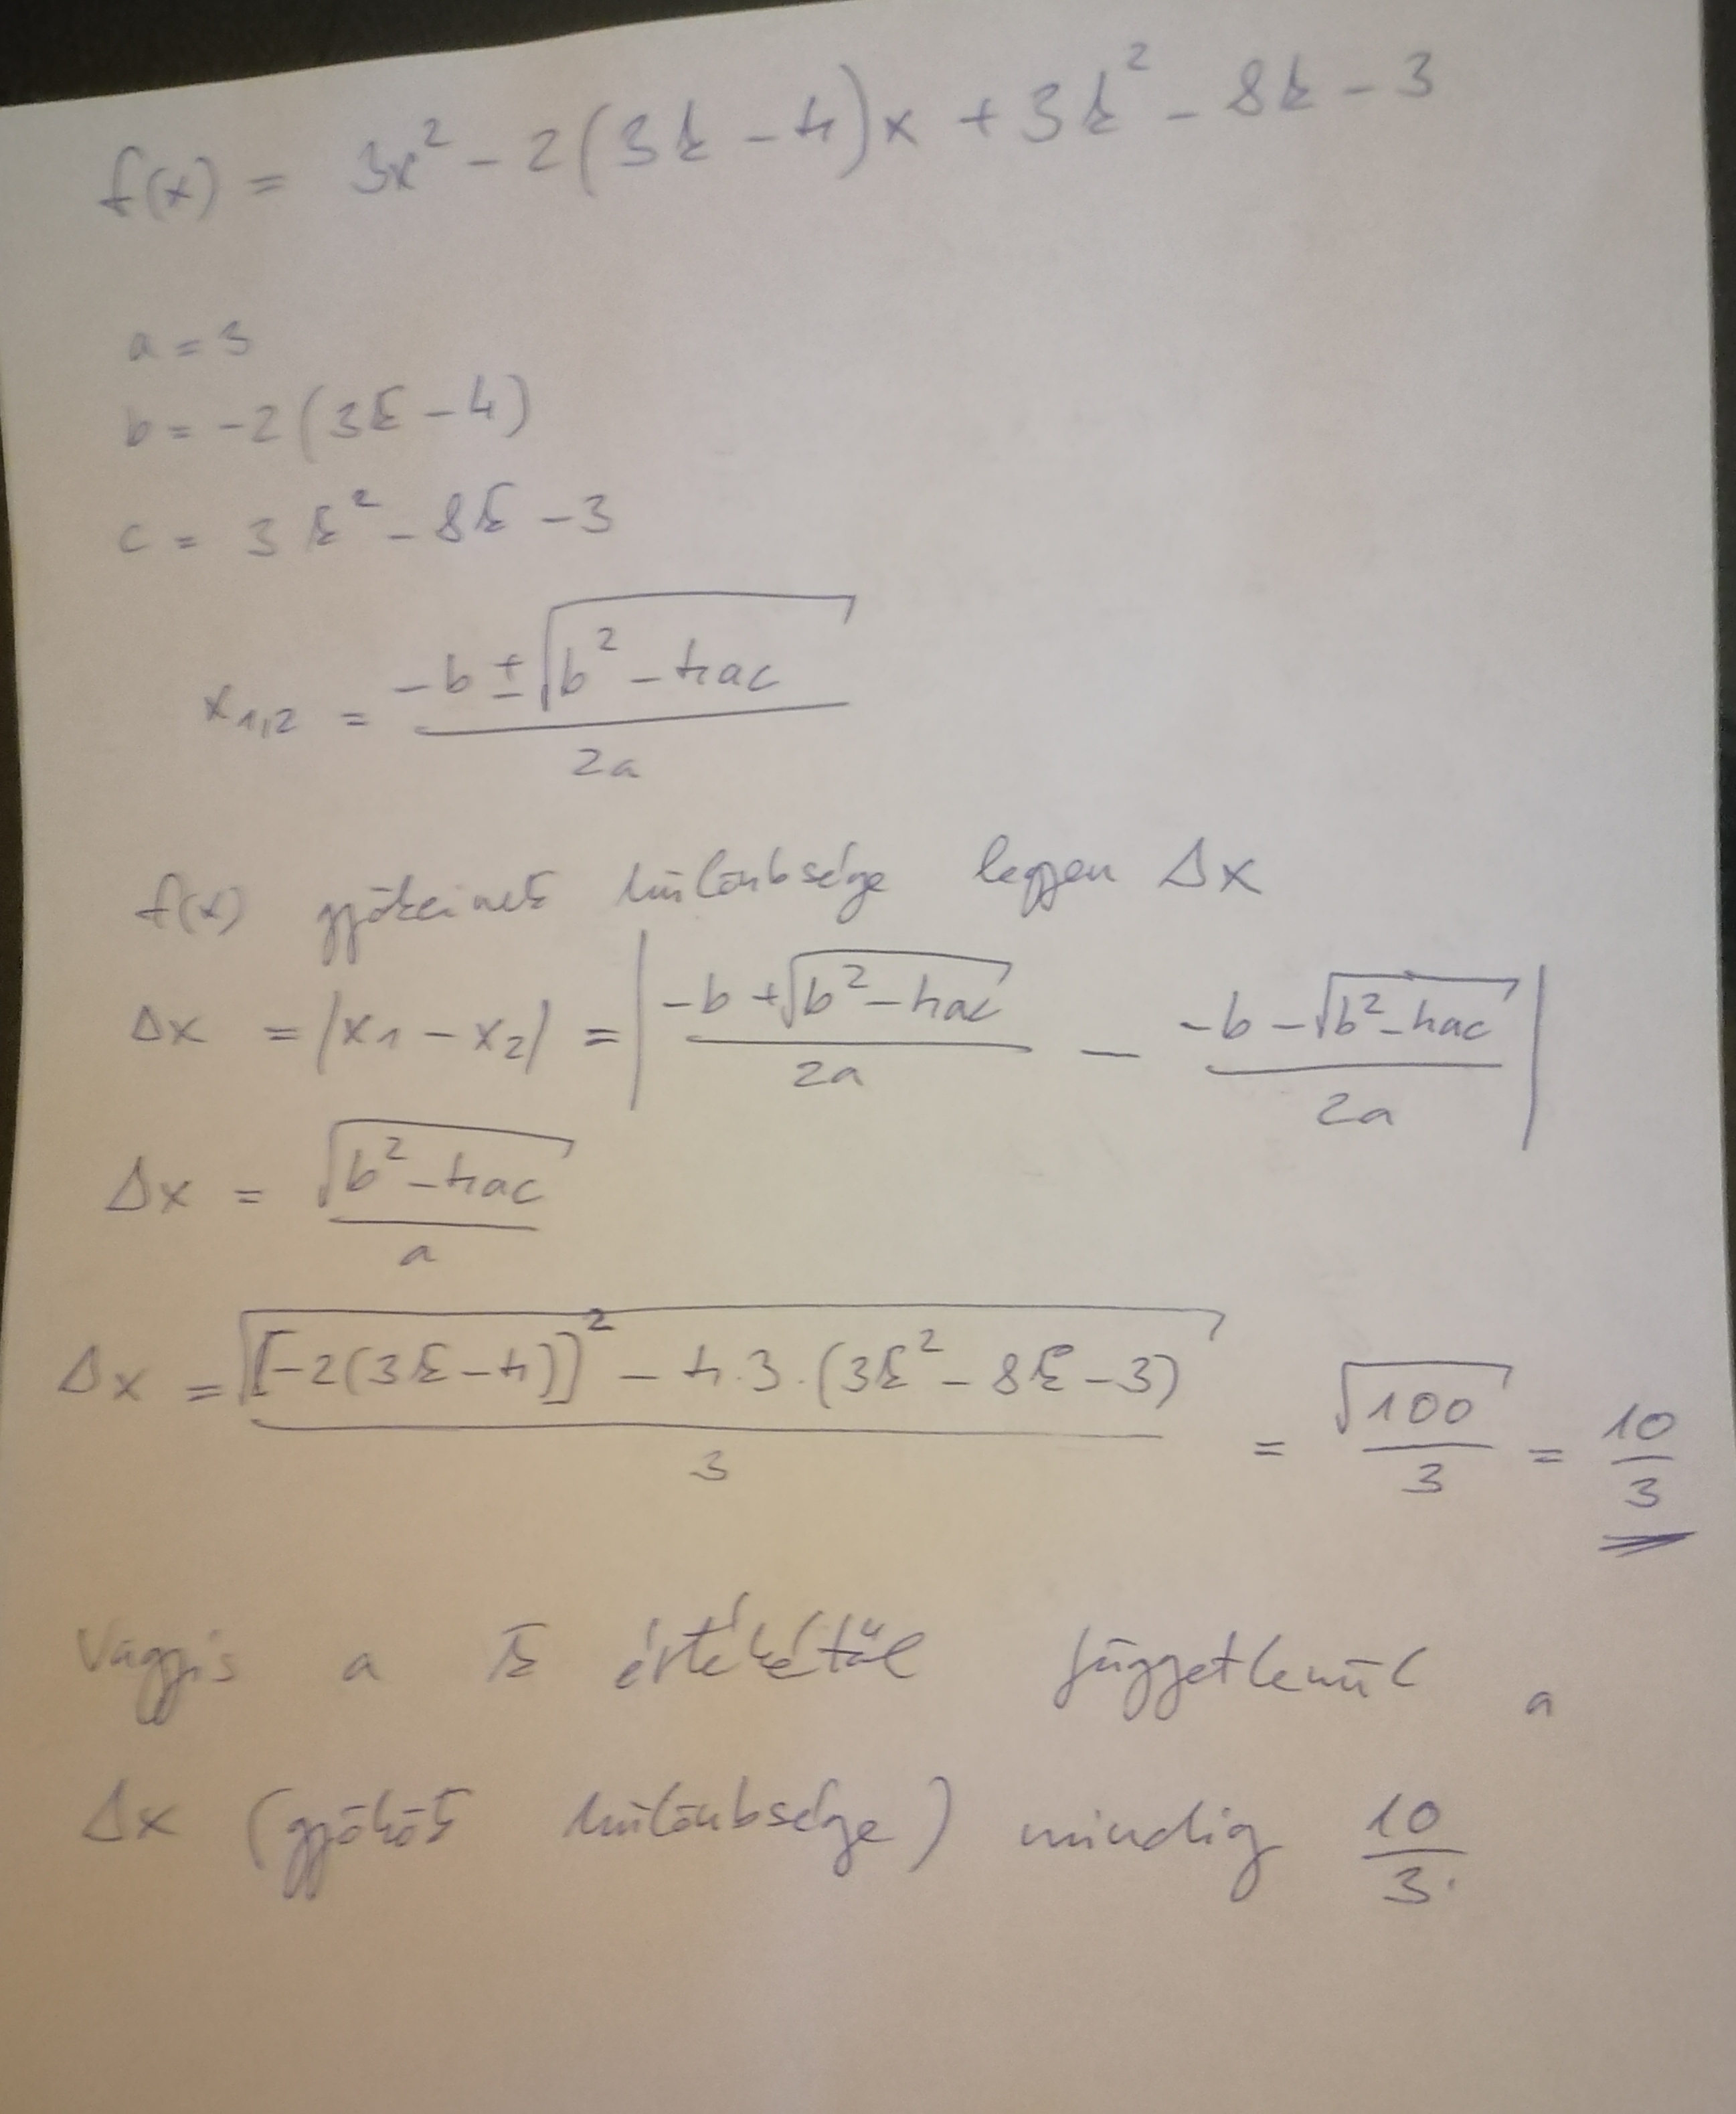 f(x) = 3x² - 2(3k - 4)x + 3k² - 8k - 3
a = 3
b = -2(3k - 4)
c = 3k² - 8k - 3
x₁,₂ = (-b ± √(b² - 4ac)) / 2a
f(x) gyökeinek különbsége legyen Δx
Δx = |x₁ - x₂| = |(-b + √(b² - 4ac)) / 2a - (-b - √(b² - 4ac)) / 2a|
Δx = √(b² - 4ac) / a
Δx = √([-2(3k - 4)]² - 4·3·(3k² - 8k - 3)) / 3 = √100 / 3 = 10/3
Vagyis a k értékétől függetlenül a
Δx (gyökök különbsége) mindig 10/3.